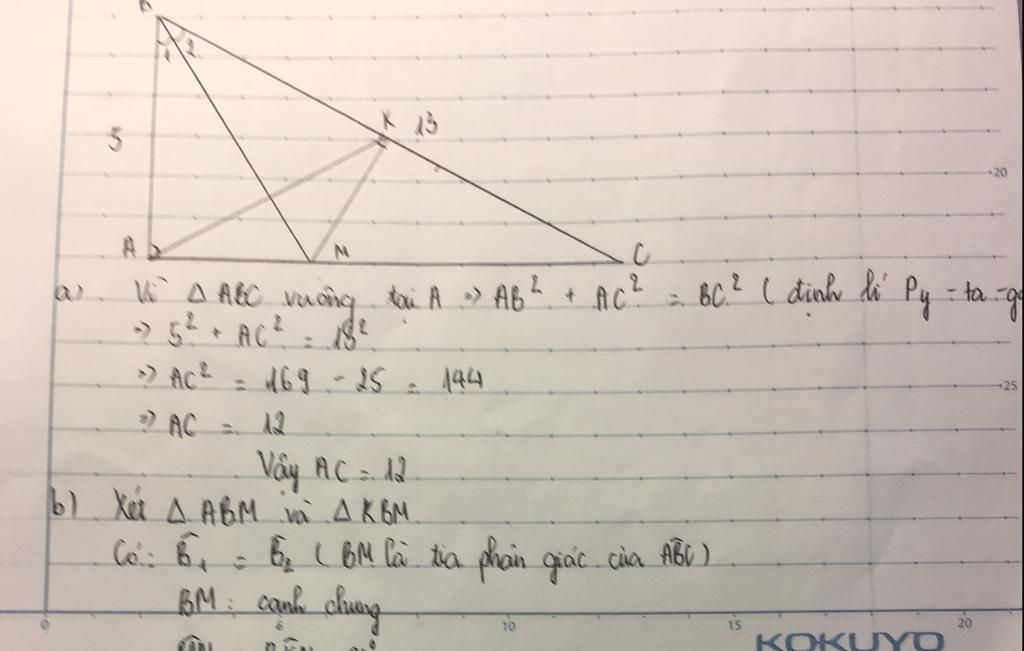 1 2
K 13
5
20
A M C
a) Vì Δ ABC vuông tại A => AB² + AC² = BC² (định lí Py-ta-go
=> 5² + AC² = 13²
=> AC² = 169 - 25 = 144
25
=> AC = 12
Vậy AC = 12
b) Xét Δ ABM và Δ KBM
Có: B̂₁ = B̂₂ (BM là tia phân giác của ABC)
BM: cạnh chung
0 5 10 15 20
KOKUYO